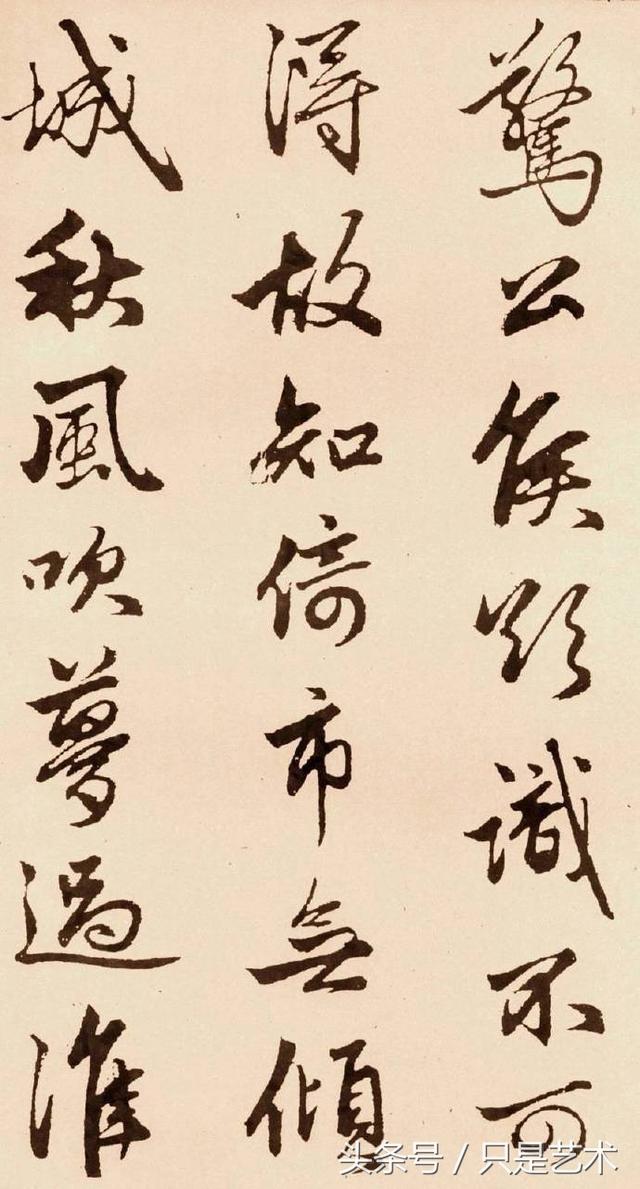 驚公侯欲識不可
得故知倚市無傾
城秋風吹夢過淮
头条号 / 只是艺术